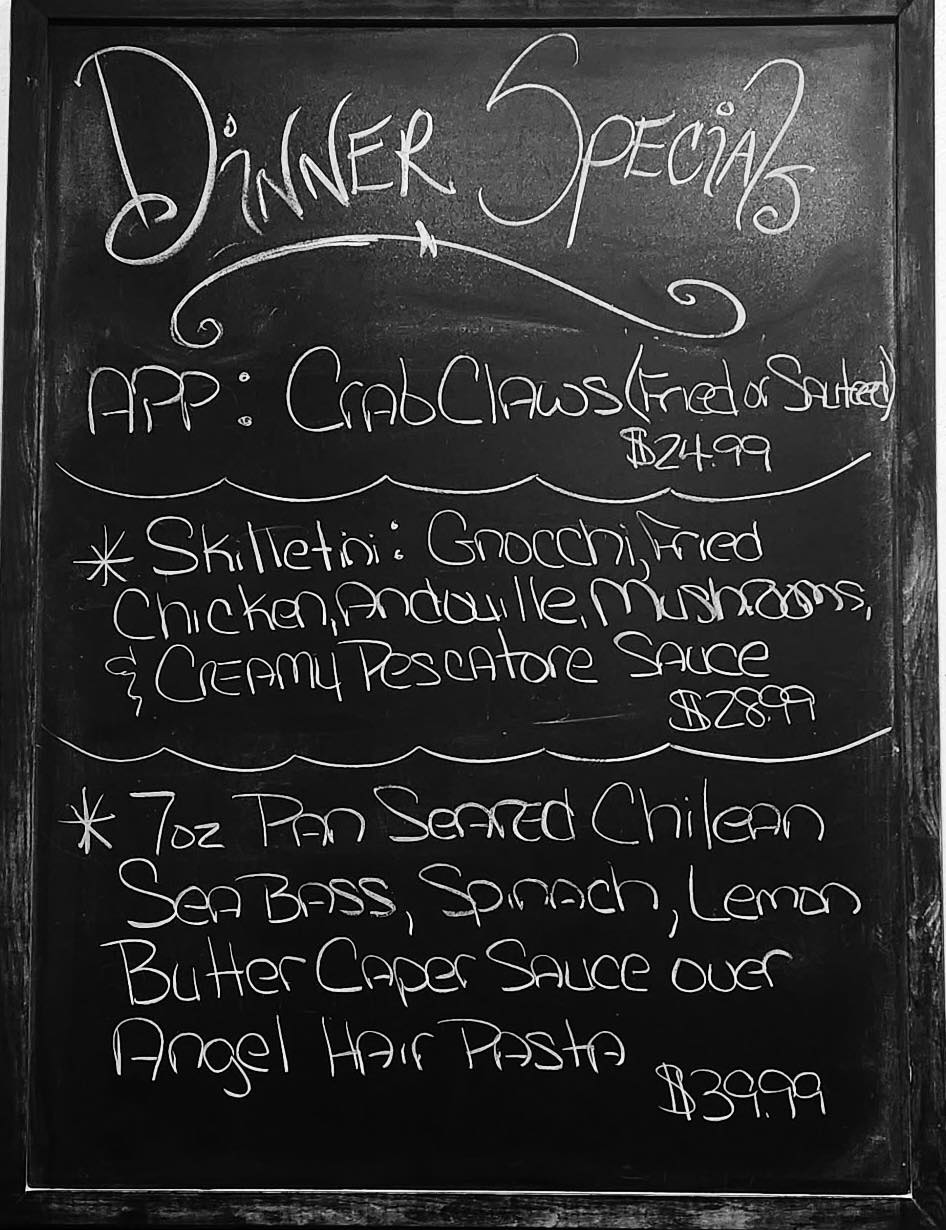 Dinner Specials
App: Crab Claws (Fried or Sauteed)
$24.99
* Skilletini: Gnocchi, Fried
Chicken, Andouille, Mushrooms,
& Creamy Pescatore Sauce
$28.99
* 7oz Pan Seared Chilean
Sea Bass, Spinach, Lemon
Butter Caper Sauce over
Angel Hair Pasta
$39.99